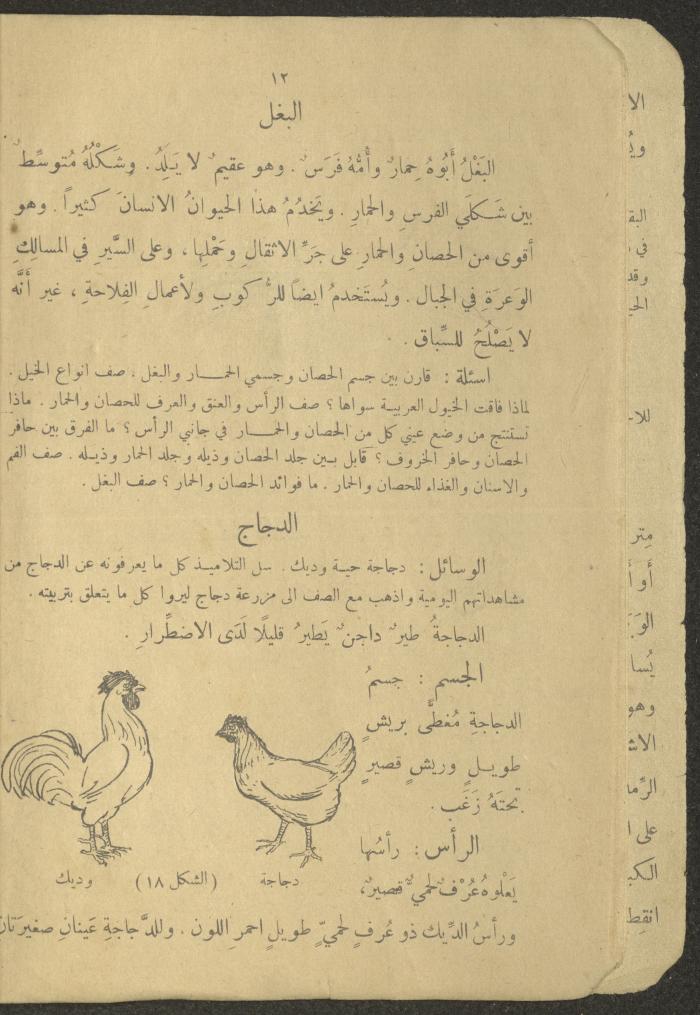 ١٢
البغل
البَغْلُ أَبُوهُ حِمارٌ وأُمُّهُ فَرَسٌ . وهو عقيمٌ لا يَلِدُ . وشَكْلُهُ مُتوسِّطٌ
بين شَكلَي الفرسِ والحمارِ . ويَخدُمُ هذا الحيوانُ الانسانَ كثيراً . وهو
أقوى من الحصانِ والحمارِ على جَرِّ الاثقالِ وحَمْلِها ، وعلى السَّيرِ في المسالِكِ
الوَعرَةِ في الجبال . ويُستَخدمُ ايضاً للرُّكوبِ ولأعمالِ الفِلاحةِ ، غير أَنَّه
لا يَصْلُحُ للسِّباق .
اسئلة : قارن بين جسم الحصان وجسمي الحمار والبغل . صف انواع الخيل .
لماذا فاقت الخيول العربية سواها ؟ صف الرأس والعنق والعرف للحصان والحمار . ماذا
تستنتج من وضع عيني كل من الحصان والحمار في جانبي الرأس ؟ ما الفرق بين حافر
الحصان وحافر الخروف ؟ قابل بين جلد الحصان وذيله وجلد الحمار وذيله . صف الفم
والاسنان والغذاء للحصان والحمار . ما فوائد الحصان والحمار ؟ صف البغل .
الدجاج
الوسائل : دجاجة حية وديك . سل التلاميذ كل ما يعرفونه عن الدجاج من
مشاهداتهم اليومية واذهب مع الصف الى مزرعة دجاج ليروا كل ما يتعلق بتربيته .
الدجاجةُ طيرٌ داجنٌ يَطيرُ قليلًا لَدَى الاضطِرارِ .
الجسم : جسمُ
الدجاجةِ مُغطًّى بريشٍ
طويلٍ وريشٍ قصيرٍ
تحتَهُ زَغَب .
الرأس : رأسُها
يَعْلوهُ عُرْفٌ لحميٌّ قصيرٌ،
دجاجة (الشكل ١٨) وديك
ورأسُ الدِّيك ذو عُرفٍ لحميٍّ طويلٍ احمرِ اللون . وللدَّجاجةِ عَينانِ صغيرَتان